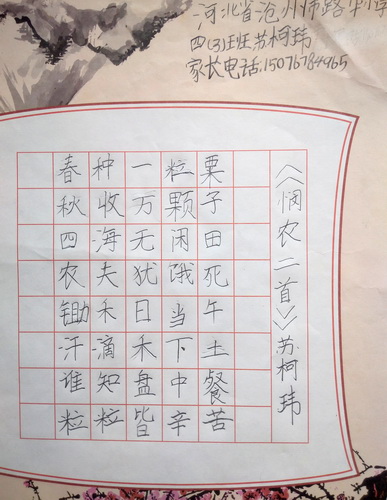 河北省沧州师路
四(3)班苏柯玮
家长电话:15076784965
《悯农二首》苏柯玮
春种一粒粟
秋收万颗子
四海无闲田
农夫犹饿死
锄禾日当午
汗滴禾下土
谁知盘中餐
粒粒皆辛苦